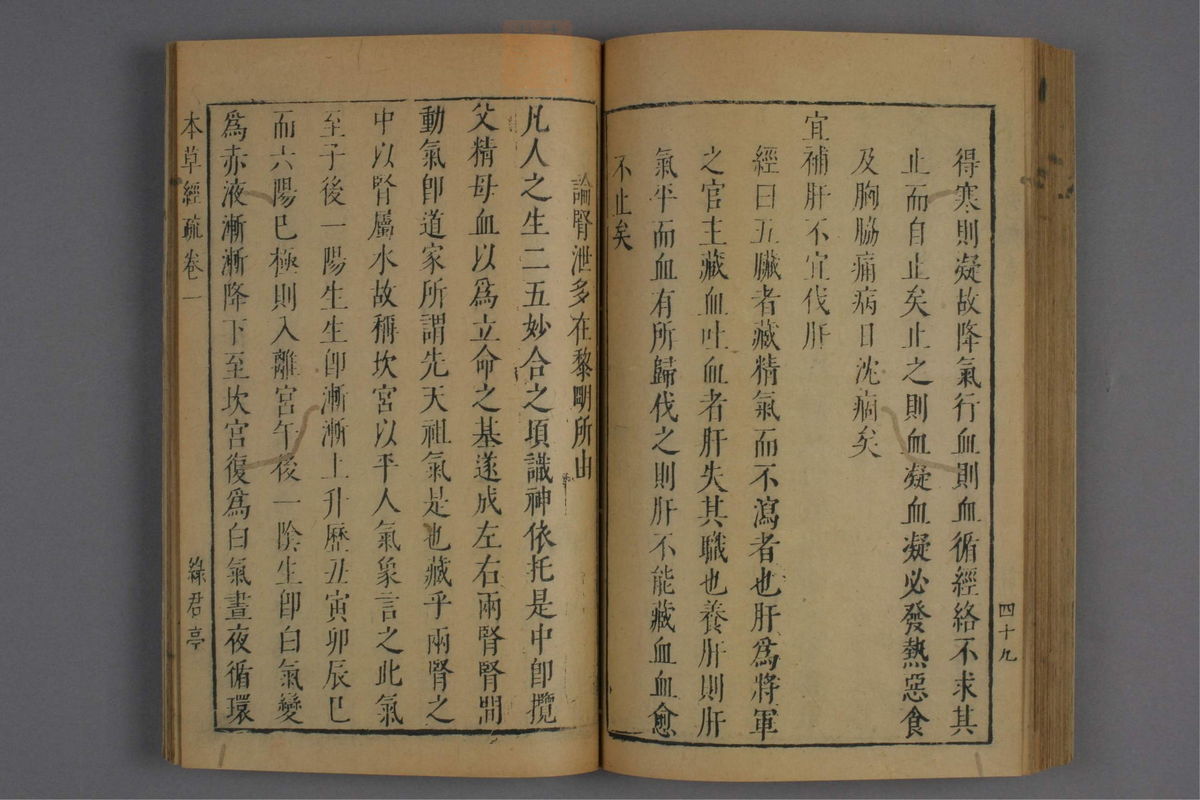 得寒則凝故降氣行血則血循經絡不求其
止而自止矣止之則血凝血凝必發熱惡食
及胸脇痛病日沈痼矣
宜補肝不宜伐肝
經曰五臟者藏精氣而不瀉者也肝爲將軍
之官主藏血吐血者肝失其職也養肝則肝
氣平而血有所歸伐之則肝不能藏血血愈
不止矣
四十九
論腎泄多在黎明所由
凡人之生二五妙合之項識神依托是中卽攬
父精母血以爲立命之基遂成左右兩腎腎間
動氣卽道家所謂先天祖氣是也藏乎兩腎之
中以腎屬水故稱坎宮以平人氣象言之此氣
至子後一陽生生卽漸漸上升歷丑寅卯辰巳
而六陽已極則入離宮午後一陰生卽白氣變
爲赤液漸漸降下至坎宮復爲白氣晝夜循環
本草經疏卷一
綠君亭